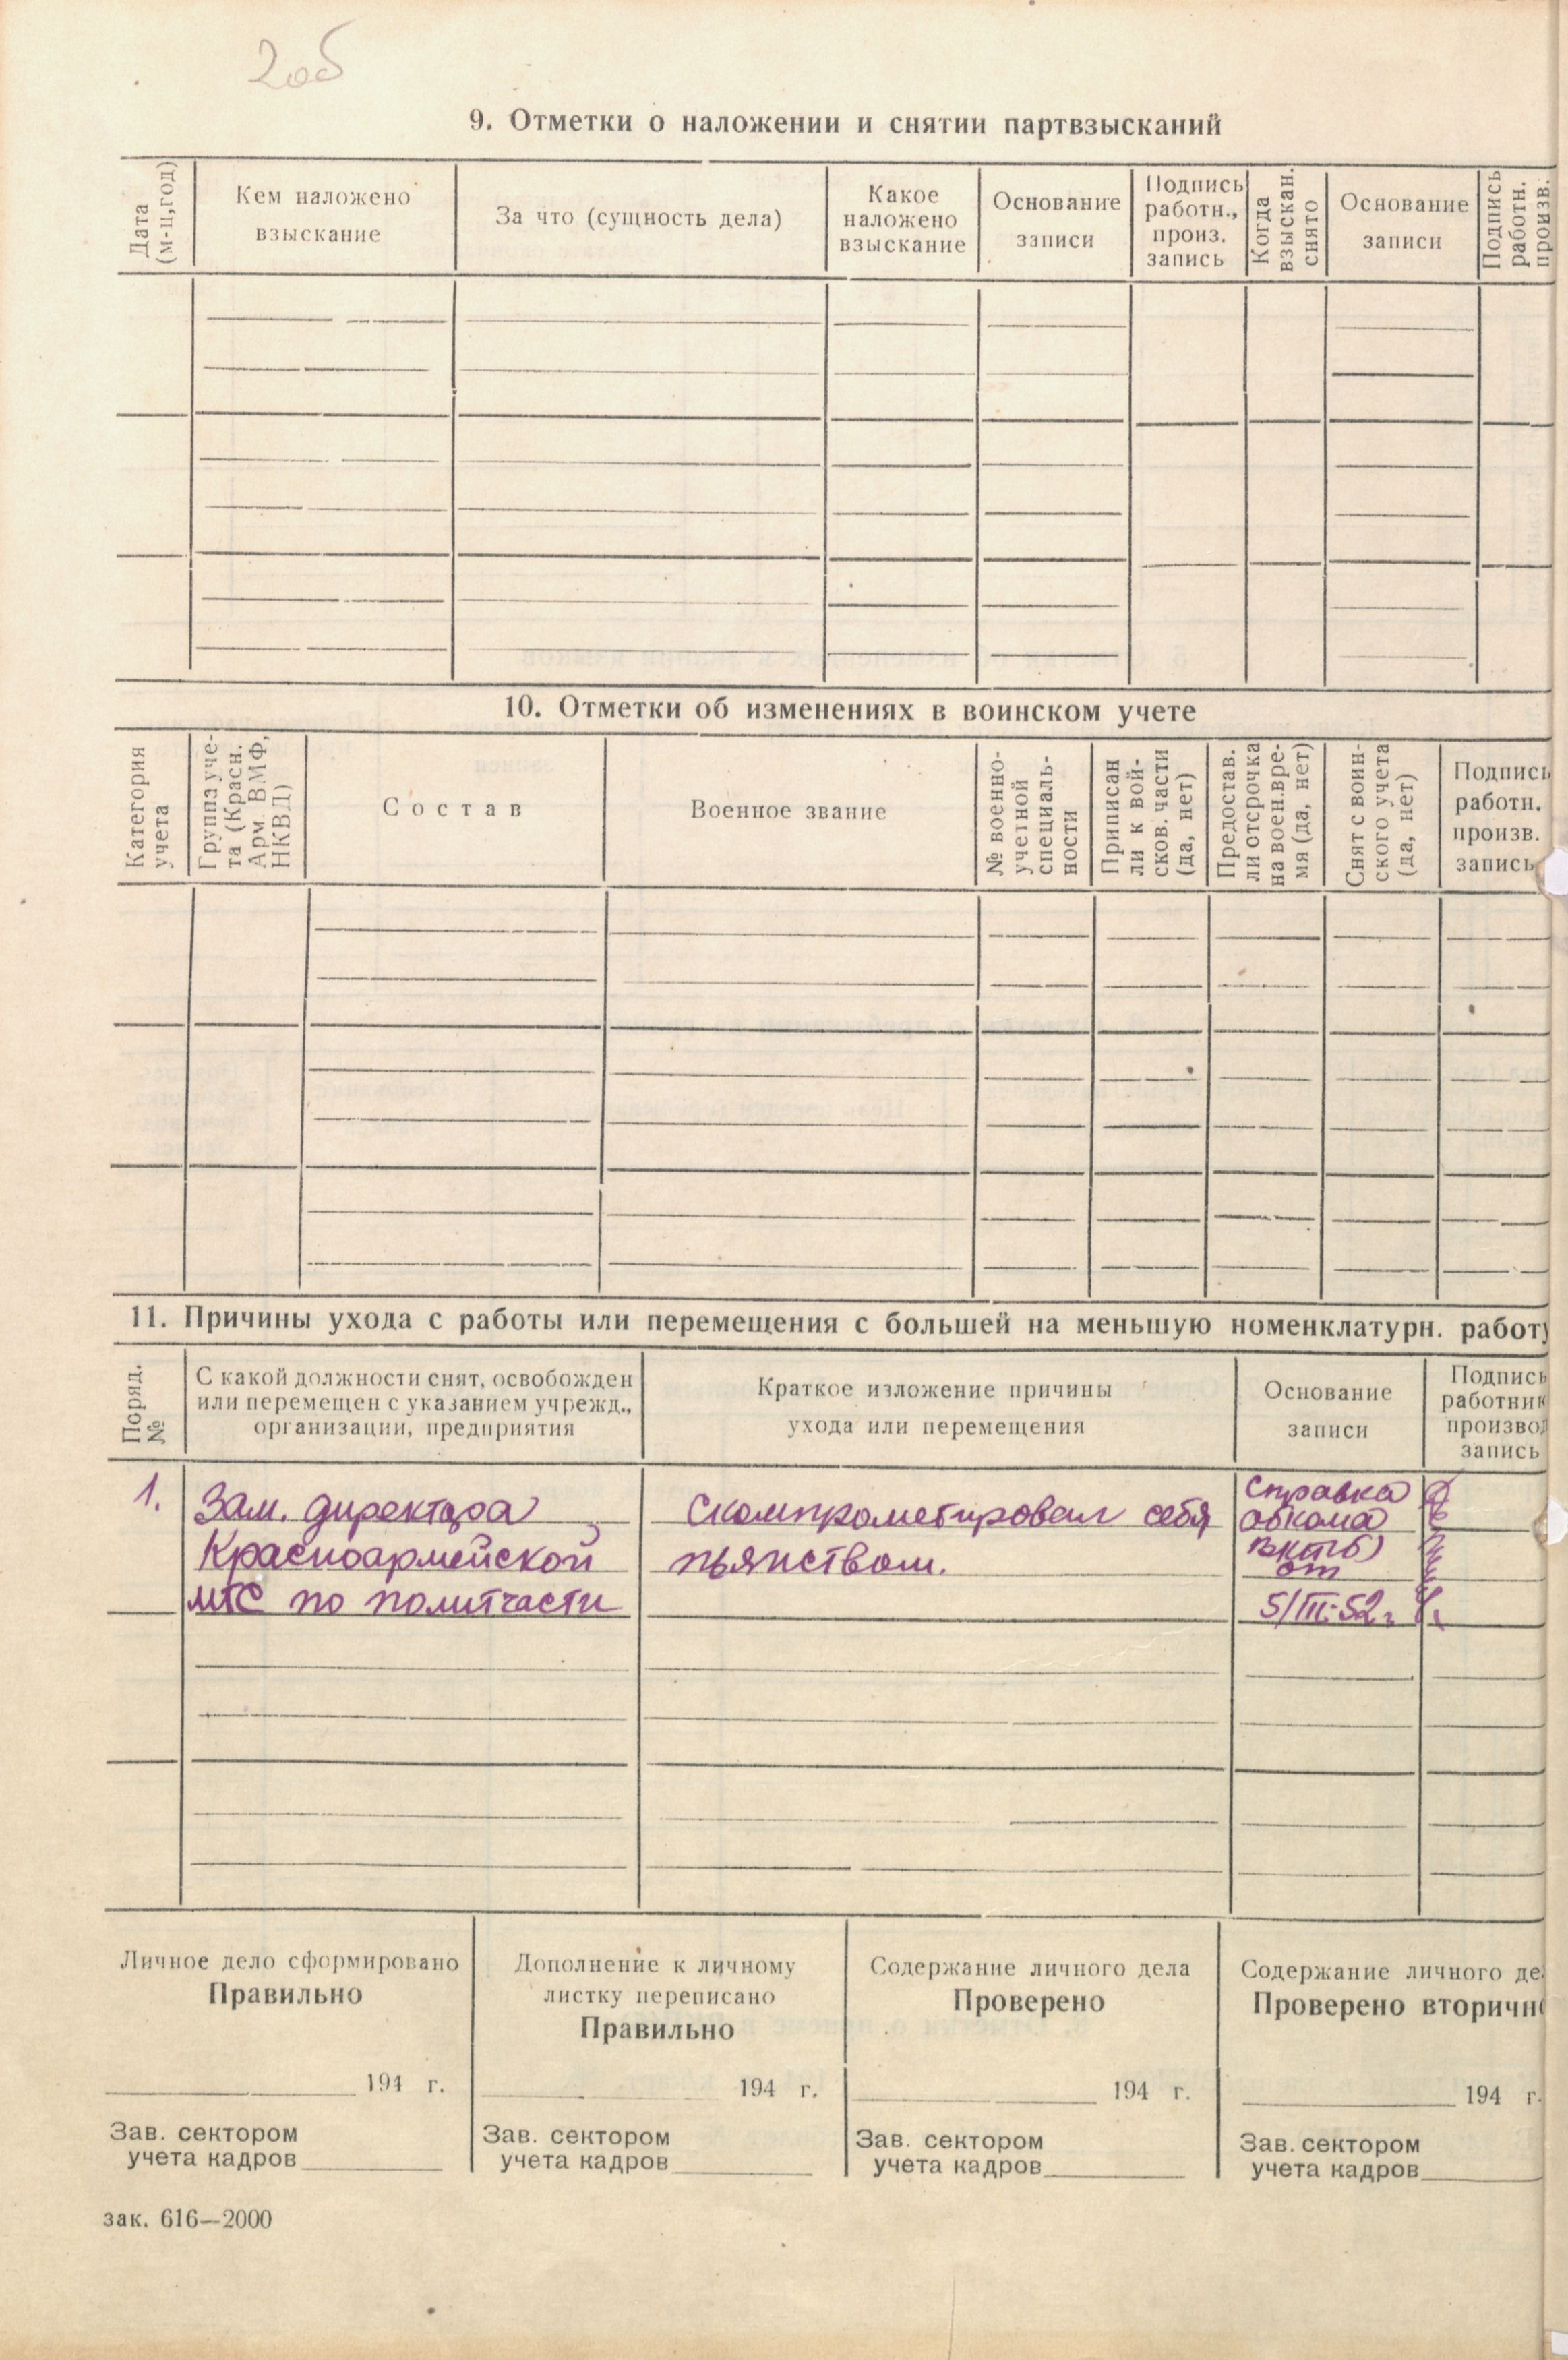 2об
9. Отметки о наложении и снятии партвзысканий
Дата
(м-ц,год)
Кем наложено
взыскание
За что (сущность дела)
Какое
наложено
взыскание
Основание
записи
Подпись
работн.,
произ.
запись
Когда
взыскан.
снято
Основание
записи
Подпись
работн.
произв.
10. Отметки об изменениях в воинском учете
Категория
учета
Группа уче-
та (Красн.
Арм. ВМФ,
НКВД)
Состав
Военное звание
№ военно-
учетной
специаль-
ности
Приписан
ли к вой-
сков. части
(да, нет)
Предостав.
ли отсрочка
на воен.вре-
мя (да, нет)
Снят с воин-
ского учета
(да, нет)
Подпись
работн.
произв.
запись
11. Причины ухода с работы или перемещения с большей на меньшую номенклатурн. работу
Поряд.
№
С какой должности снят, освобожден
или перемещен с указанием учрежд.,
организации, предприятия
Краткое изложение причины
ухода или перемещения
Основание
записи
Подпись
работник
производ
запись
1.
Зам. директора
Красноармейской
МТС по политчасти
Скомпрометировал себя
пьянством.
Справка
обкома
ВКП(б)
от
5/III-52г
Личное дело сформировано
Правильно
194 г.
Зав. сектором
учета кадров
Дополнение к личному
листку переписано
Правильно
194 г.
Зав. сектором
учета кадров
Содержание личного дела
Проверено
194 г.
Зав. сектором
учета кадров
Содержание личного де
Проверено вторичн
194 г.
Зав. сектором
учета кадров
зак. 616—2000